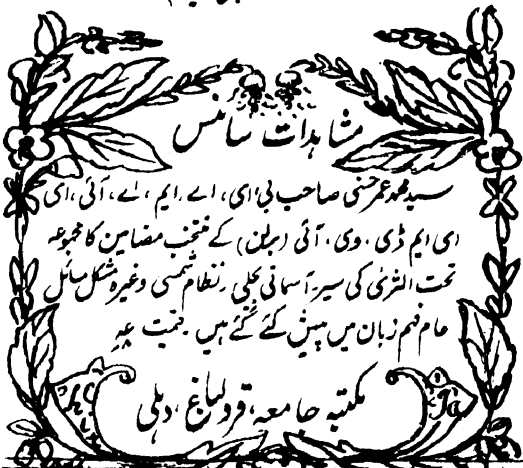 مشاہدات سائنس
سید محمد عمر حسنی صاحب بی، ای، اے، ایم، اے، آئی، ای
ای ایم ڈی، وی، آئی (برلن) کے منتخب مضامین کا مجموعہ
تحت الثریٰ کی سیر۔ آسمانی بجلی۔ نظام شمسی وغیرہ مشکل مسائل
عام فہم زبان میں پیش کئے گئے ہیں۔ قیمت عہ
مکتبہ جامعہ، قرولباغ، دہلی